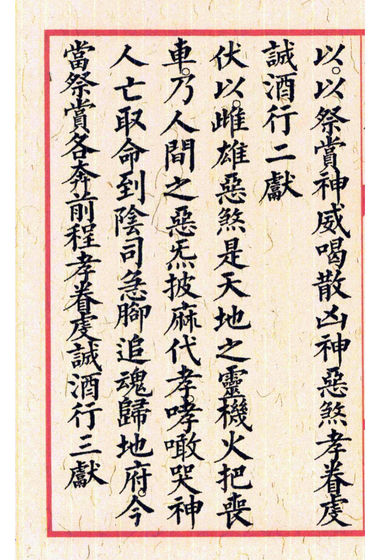 以。以祭賞神威喝散凶神惡煞孝眷虔
誠酒行二獻
伏以。雌雄惡煞是天地之靈機火把喪
車。乃人間之惡炁披麻代孝。哮噉哭神
人亡取命到陰司急腳追魂歸地府。今
當祭賞各奔前程孝眷虔誠酒行三獻